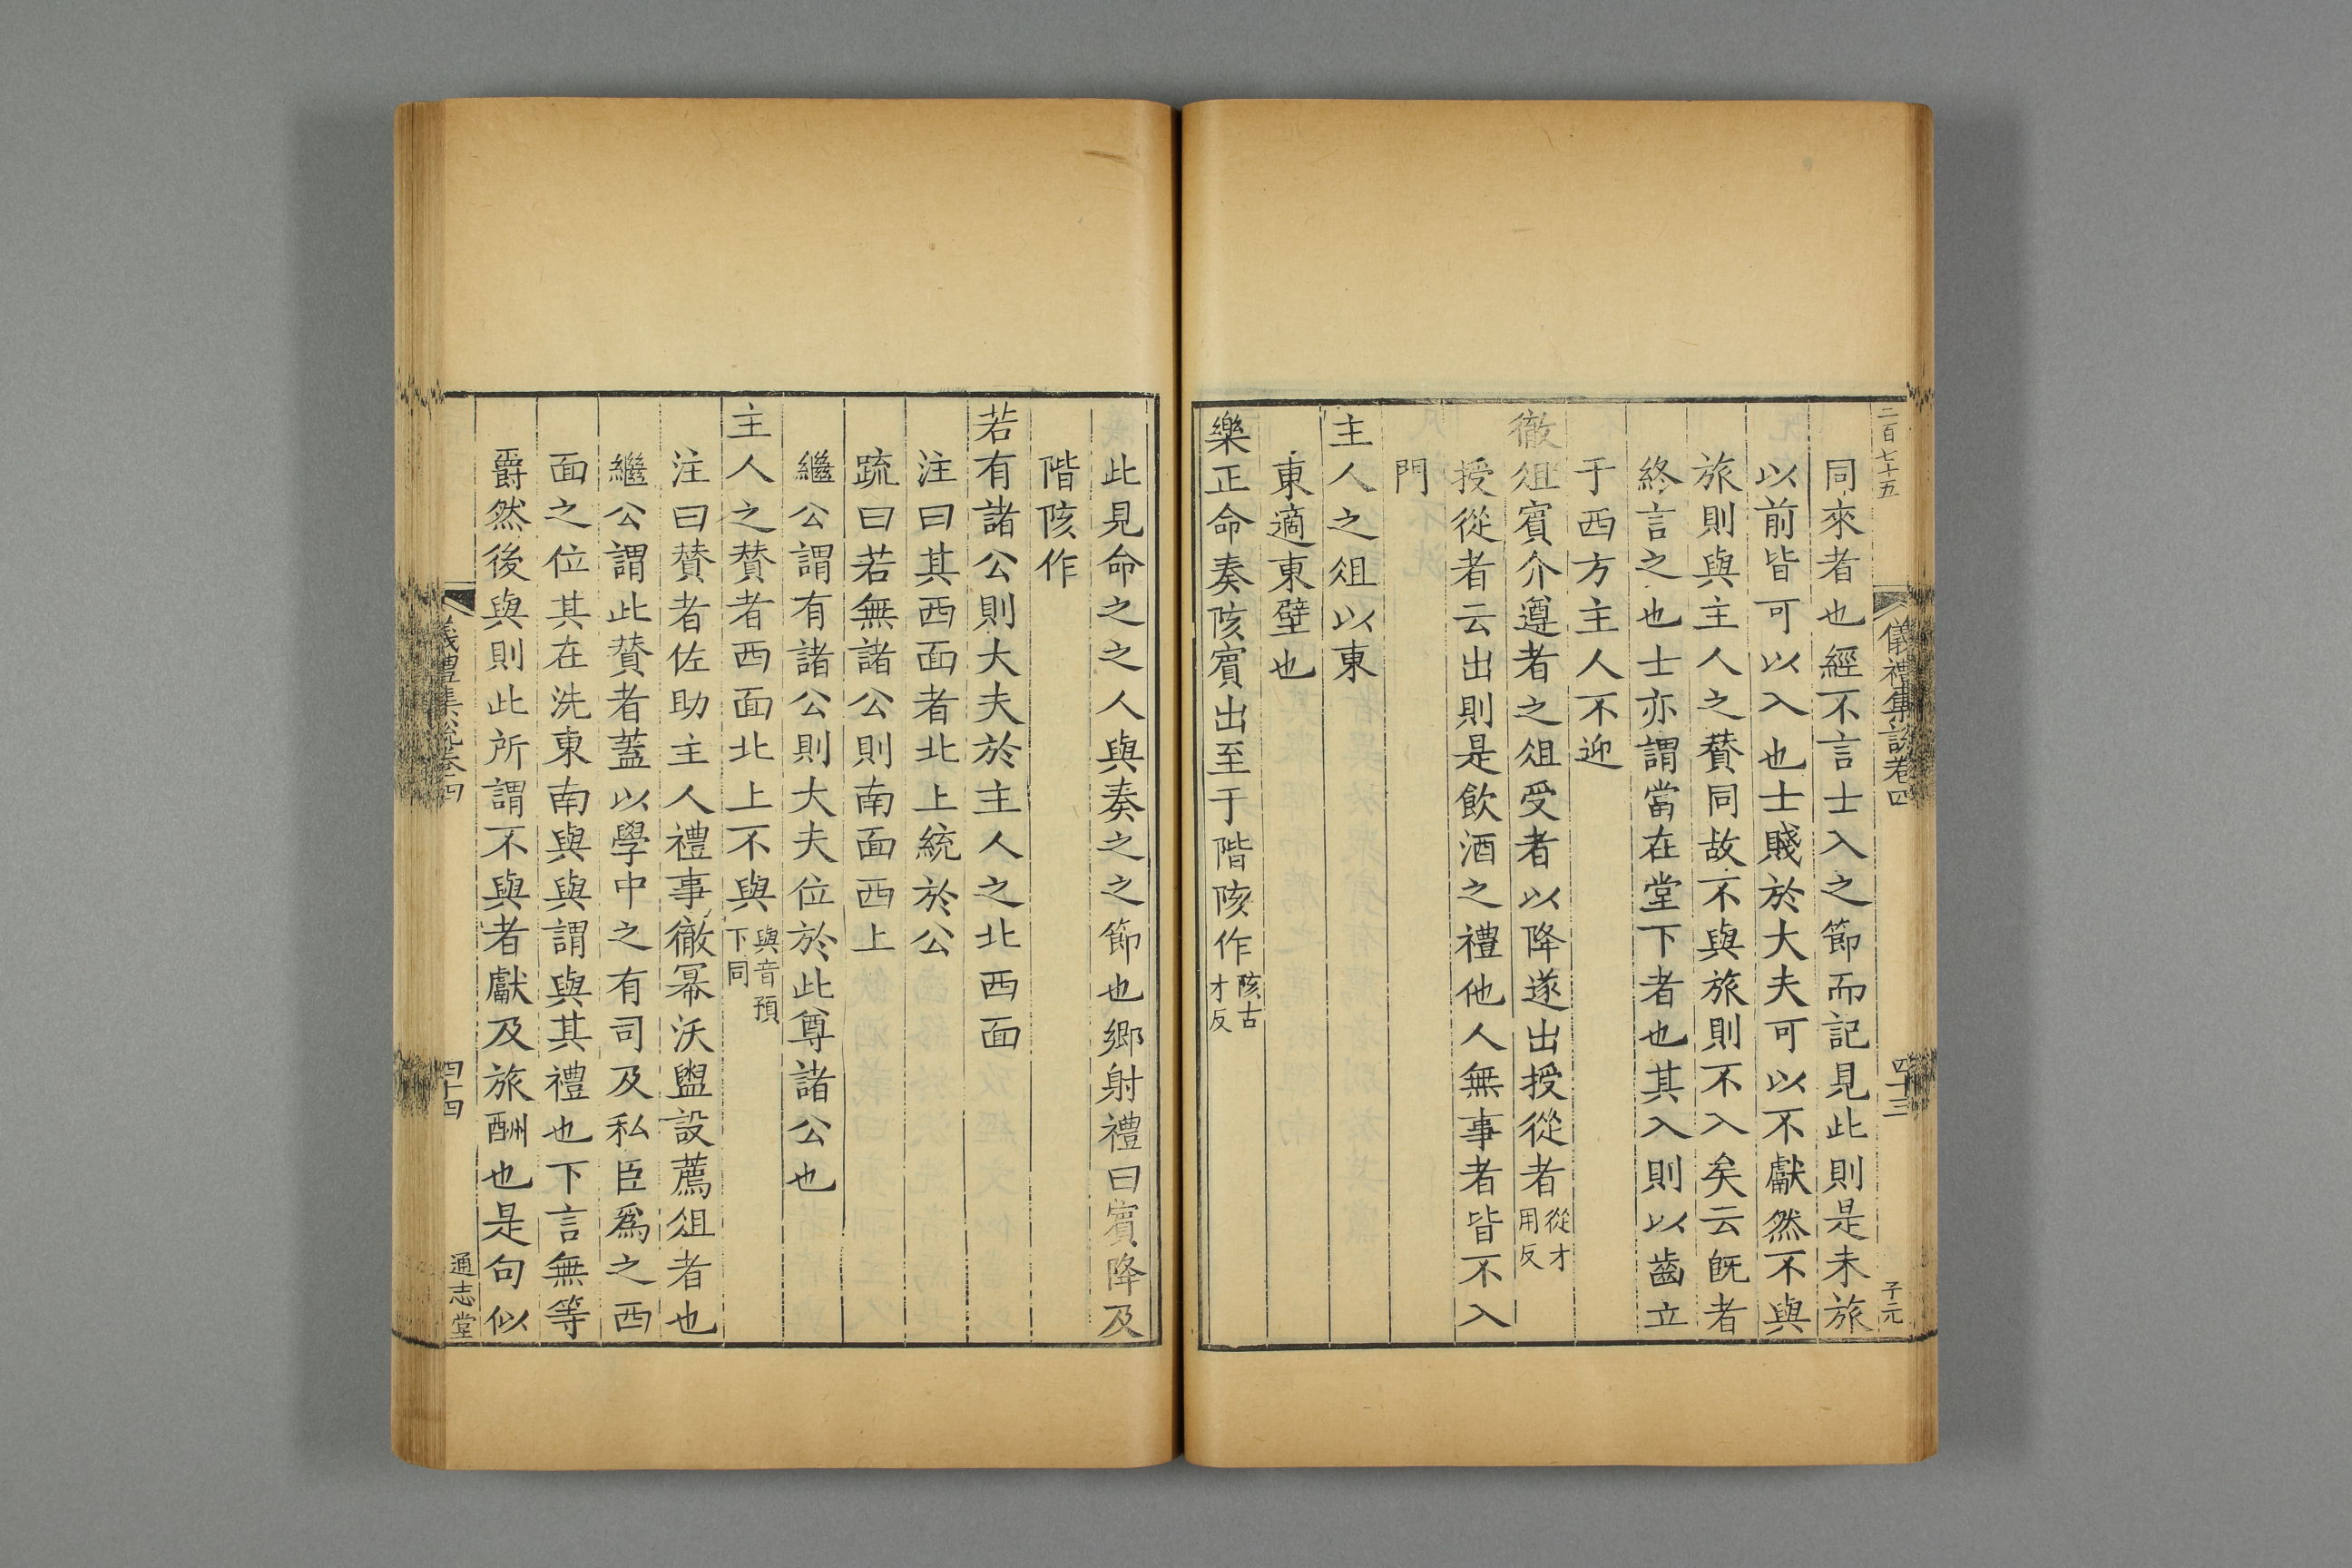 二百七十五
儀禮集說卷四
四十三
子元
同來者也經不言士入之節而記見此則是未旅
以前皆可以入也士賤於大夫可以不獻然不與
旅則與主人之贊同故不與旅則不入矣云旣者
終言之也士亦謂當在堂下者也其入則以齒立
于西方主人不迎
徹俎賓介遵者之俎受者以降遂出授從者從才用反
授從者云出則是飲酒之禮他人無事者皆不入
門
主人之俎以東
東適東壁也
樂正命奏陔賓出至于階陔作陔古才反
此見命之之人與奏之之節也鄉射禮曰賓降及
階陔作
若有諸公則大夫於主人之北西面
注曰其西面者北上統於公
疏曰若無諸公則南面西上
繼公謂有諸公則大夫位於此尊諸公也
主人之贊者西面北上不與與音預下同
注曰贊者佐助主人禮事徹冪沃盥設薦俎者也
繼公謂此贊者蓋以學中之有司及私臣爲之西
面之位其在洗東南與與謂與其禮也下言無等
爵然後與則此所謂不與者獻及旅酬也是句似
儀禮集說卷四
四十四
通志堂